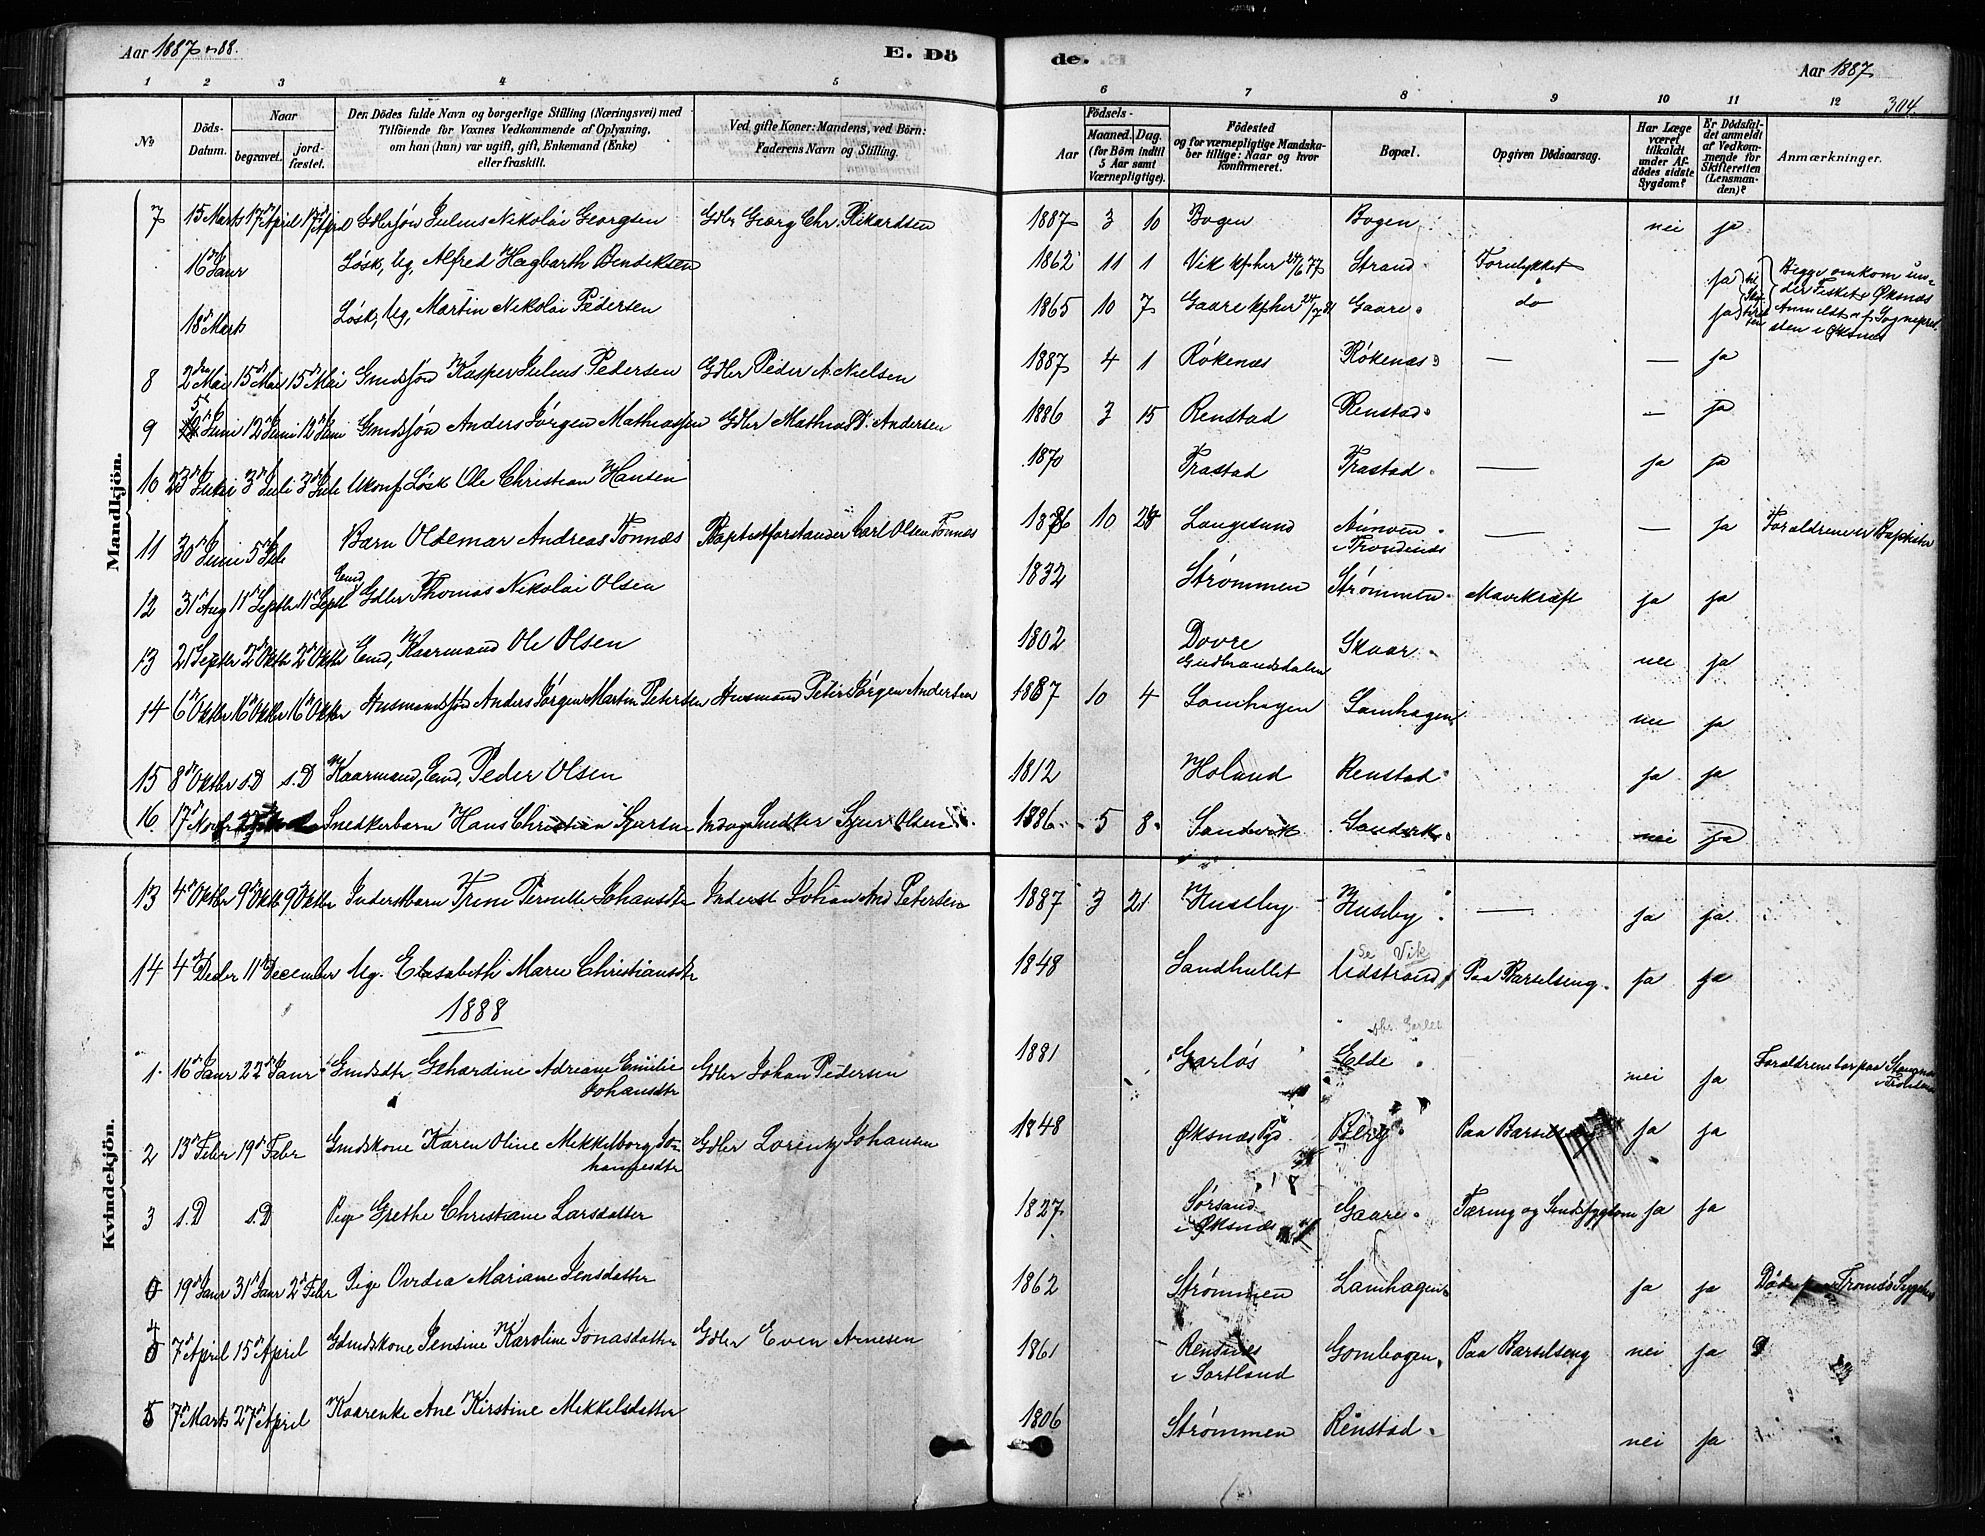 Aar 1887 og 88.
E. Dö
de.
Aar 1887
304.
1 2 3 4 5 6 7 8 9 10 11 12
No
Döds-Datum.
Naar
begravet.
jord-fæstet.
Den Dödes fulde Navn og borgerlige Stilling (Næringsvei) med
Tilföiende for Voxnes Vedkommende af Oplysning,
om han (hun) var ugift, gift, Enkemand (Enke)
eller fraskilt.
Ved gifte Koner: Mandens, ved Börn:
Faderens Navn og Stilling.
Födsels-
Aar
Maaned. Dag.
(for Börn indtil
5 Aar samt
Værnepligtige).
Födested
og for værnepligtige Mandska-
ber tillige: Naar og hvor
konfirmeret.
Bopæl.
Opgiven Dödsaarsag.
Har Læge
været
tilkaldt
under Af-
dödes sidste
Sygdom?
Er Dödsfal-
det anmeldt
af Vedkom-
mende for
Skifteretten
(Lensman-
den)?
Anmærkninger.
Mandkjön.
7 15 Marts 17 April 17 April Gdlersøn Julius Nikolai Georgsen Gdlr Georg Chr. Rikardsen 1887 3 10 Bogen Bogen nei ja
16 Janr Løsk, Ug, Alfred Hagbarth Bendiksen 1862 11 1 Vik kfher 24/6 77 Strand Forulykket ja
18 Marts Løsk, Ug, Martin Nikolai Pedersen 1865 10 7 Gaare kfher Gaare do ja
Begge omkom un-
der Fisket i Øksnæs
Anmeldt af Sognepræ-
sten i Øksnæs
8 2 Mai 15 Mai 15 Mai Gmdssøn Kasper Julius Pedersen Gdler Peder A. Nielsen 1887 4 1 Røkenæs Røkenæs — — ja
9 5 Juni 12 Juni 12 Juni Gmdssøn Anders Jørgen Mathiassen Gdler Mathias P. Andersen 1886 3 15 Renstad Renstad — ja
10 23 Juni 3 Juli 3 Juli Ukonf Løsk Ole Christian Hansen 1870 Trastad Trastad — ja ja
11 30 Juni 5 Juli Barn Oldemar Andreas Tønnæs Baptistforstander Carl Olsen Tønnes 1876 10 28 Langesund i Trondenæs — — ja Forældrene er Baptister
12 31 Aug 11 Septbr 11 Septb Emd, Gdler Thomas Nikolai Olsen 1832 Strømmen Strømmen Mavekræft ja ja
13 21 Septbr 2 Oktbr 2 Oktbr Emd, Kaarmand Ole Olsen 1802 Dovre Gudbrandsdalen Skaar nei ja
14 6 Oktbr 16 Oktbr 16 Oktbr Husmandssøn Anders Jørgen Martin Petersen Husmand Peter Jørgen Andersen 1887 10 4 Lamhagen Lamhagen nei ja
15 8 Oktbr s. D s. D Kaarmand, Emd, Peder Olsen 1812 Holand Renstad ja ja
16 17 Novbr Snedkerbarn Hans Christian Sjursen Snedker Sjur Olsen 1886 5 8 Sandvik Sandvik nei ja
Kvindekjön.
13 4 Oktbr 9 Oktb 9 Oktbr Inderstbarn Trine Pernille Johansdtr Inderst Johan And Petersen 1887 3 21 Huseby Huseby — ja ja
14 4 Decbr 11 December Ug. Elisabeth Marie Christiansdtr 1848 Sandhullet Udstrand Se Vik Paa Barselseng ja ja
1888
1 16 Janr 22 Janr Gmdsdtr Gehardine Adriane Emilie Johansdtr Gdler Johan Pedersen 1881 Garløs Elde nei ja
2 13 Febr 19 Febr Gmdskone Karen Oline Mekkelborg Jo-
hannesdtr Gdler Lorentz Johansen 1848 Øksnæs Pgd Berg Paa Barselseng ja ja
3 s. D s. D Pige Grethe Christiane Larsdatter 1827 Sørsand i Øksnæs Gaare Tæring og Sindssygdom ja ja
0 19 Janr 31 Janr 2 Febr Pige Ovedia Mariane Jensdatter 1862 Strømmen Lamhagen ja ja
4 7 April 15 April Gdmdskone Jensine Karoline Jonasdatter Gdler Even Arnesen 1861 i Sortland Gombogen Paa Barselseng nei ja
5 7 Marts 27 April Kaarenke Ane Kirstine Mekkelsdatter 1806 Strømmen Renstad nei ja